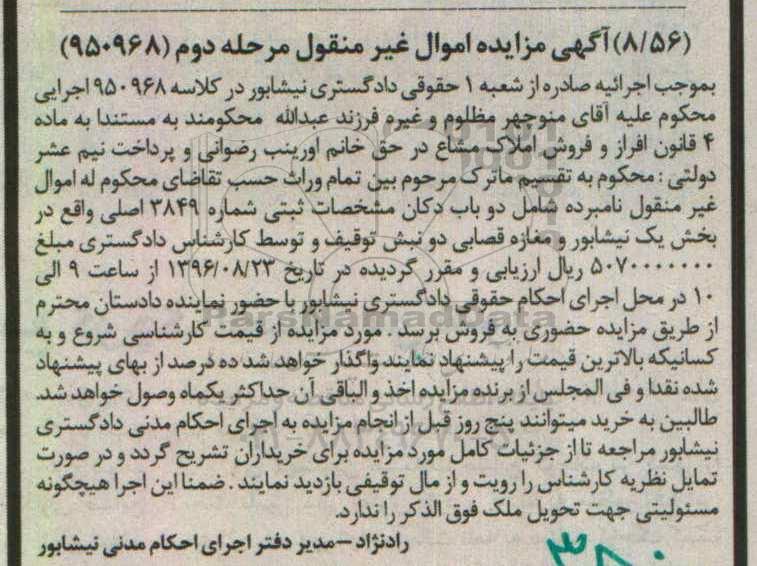 (۸/۵۶) آگهی مزایده اموال غیر منقول مرحله دوم (۹۵۰۹۶۸)
بموجب اجرائیه صادره از شعبه ۱ حقوقی دادگستری نیشابور در کلاسه ۹۵۰۹۶۸ اجرایی
محکوم علیه آقای منوچهر مظلوم و غیره فرزند عبدالله محکومند به مستندا به ماده
۴ قانون افراز و فروش املاک مشاع در حق خانم اورینب رضوانی و پرداخت نیم عشر
دولتی : محکوم به تقسیم ماترک مرحوم بین تمام وراث حسب تقاضای محکوم له اموال
غیر منقول نامبرده شامل دو باب دکان مشخصات ثبتی شماره ۳۸۴۹ اصلی واقع در
بخش یک نیشابور و مغازه قصابی دو نبش توقیف و توسط کارشناس دادگستری مبلغ
۵۰۷۰۰۰۰۰۰۰ ریال ارزیابی و مقرر گردیده در تاریخ ۱۳۹۶/۰۸/۲۳ از ساعت ۹ الی
۱۰ در محل اجرای احکام حقوقی دادگستری نیشابور با حضور نماینده دادستان محترم
از طریق مزایده حضوری به فروش برسد . مورد مزایده از قیمت کارشناسی شروع و به
کسانیکه بالاترین قیمت را پیشنهاد نمایند واگذار خواهد شد ده درصد از بهای پیشنهاد
شده نقدا و فی المجلس از برنده مزایده اخذ و الباقی آن حداکثر یکماه وصول خواهد شد.
طالبین به خرید میتوانند پنج روز قبل از انجام مزایده به اجرای احکام مدنی دادگستری
نیشابور مراجعه تا از جزئیات کامل مورد مزایده برای خریداران تشریح گردد و در صورت
تمایل نظریه کارشناس را رویت و از مال توقیفی بازدید نمایند . ضمنا این اجرا هیچگونه
مسئولیتی جهت تحویل ملک فوق الذکر را ندارد.
رادنژاد – مدیر دفتر اجرای احکام مدنی نیشابور
ParsNamadData